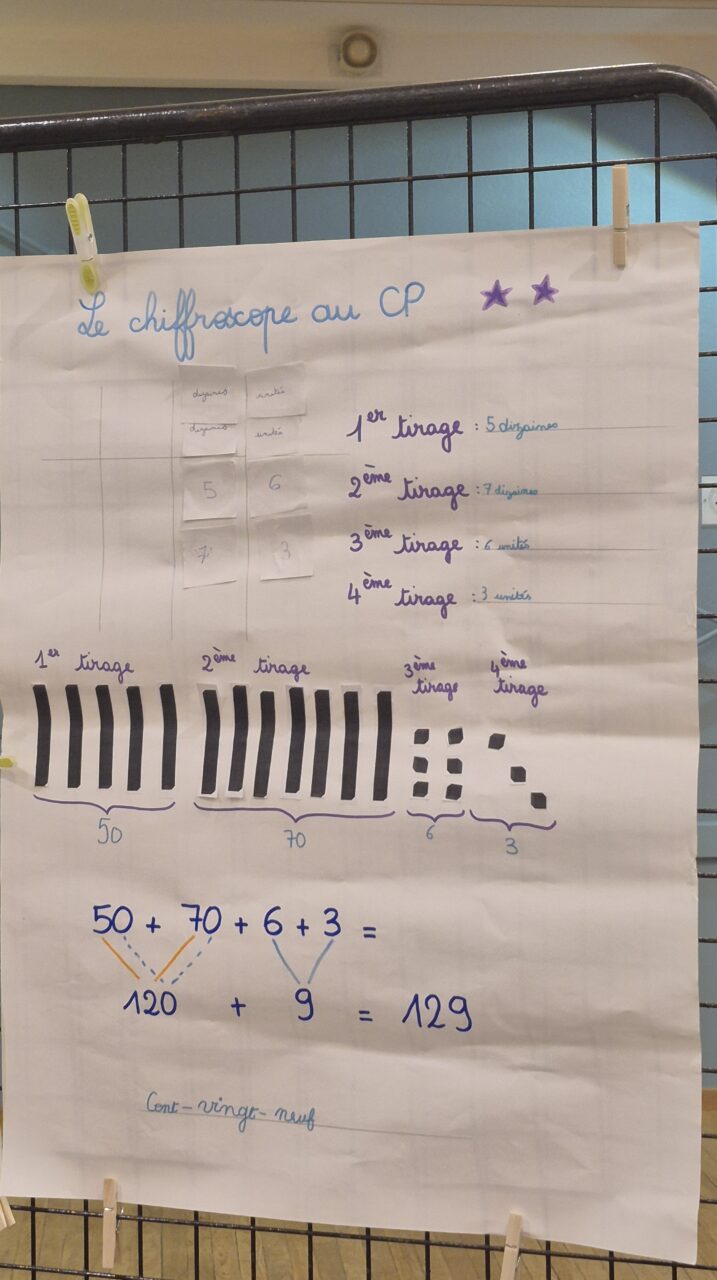 Le chiffroscope au CP
dizaines unités
dizaines unité
5 6
7 3
1er tirage : 5 dizaines
2ème tirage : 7 dizaines
3ème tirage : 6 unités
4ème tirage : 3 unités
1er tirage 2ème tirage 3ème tirage 4ème tirage
50 70 6 3
50 + 70 + 6 + 3 =
120 + 9 = 129
Cent-vingt-neuf